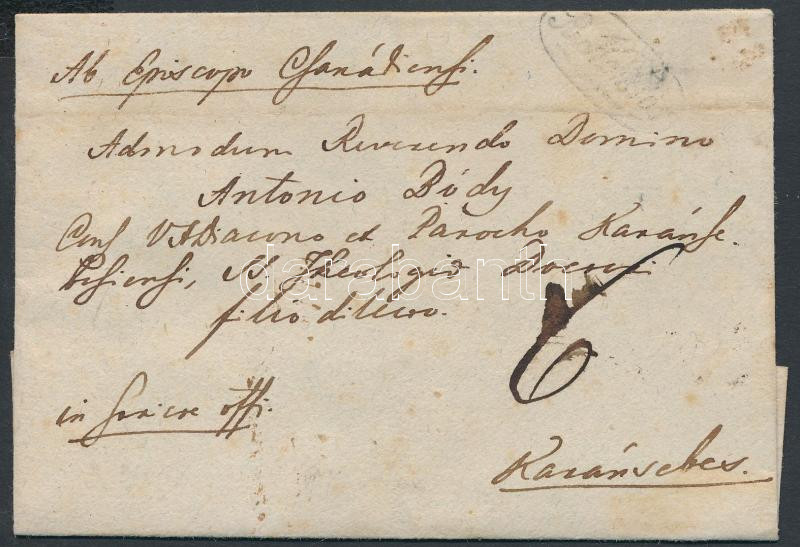 Ab Episcopo Csanádiensi.
Admodum Reverendo Domino
Antonio Bódy
Cons VADiacono et Parocho Karánse-
besiensi, SS. Theologia Doctori
filio dilecto.
6
in offi.
Karánsebes.
darabanth